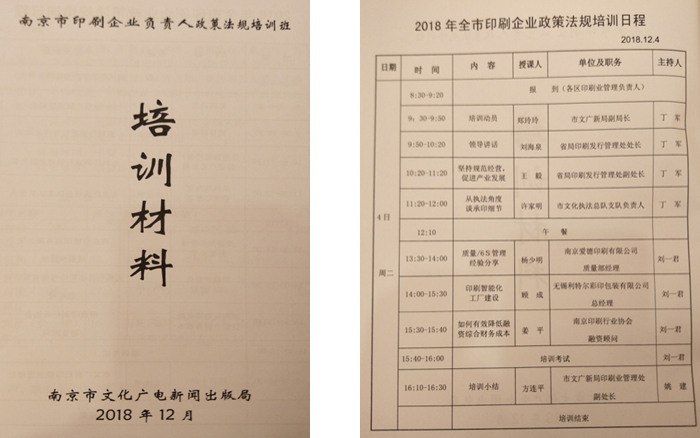 南京市印刷企业负责人政策法规培训班
培
训
材
料
南京市文化广电新闻出版局
2018 年 12 月
2018 年全市印刷企业政策法规培训日程
2018.12.4
日期 时 间 内 容 授课人 单位及职务 主持人
4日
周二
8:30-9:20 报 到(各区印刷业管理负责人)
9:30-9:50 培训动员 郑玲玲 市文广新局副局长 丁 军
9:50-10:20 领导讲话 刘海泉 省局印刷发行管理处处长 丁 军
10:20-11:20 坚持规范经营,
促进产业发展 王 毅 省局印刷发行管理处副处长 丁 军
11:20-12:00 从执法角度
谈承印细节 许家明 市文化执法总队支队负责人 丁 军
12:10 午 餐
13:30-14:00 质量/6S 管理
经验分享 杨少明 南京爱德印刷有限公司
质量部经理 刘一君
14:00-15:30 印刷智能化
工厂建设 顾 成 无锡利特尔彩印包装有限公司
总经理 刘一君
15:30-15:40 如何有效降低融
资综合财务成本 姜 平 南京印刷行业协会
融资顾问 刘一君
15:40-16:00 培训考试 刘一君
16:10-16:30 培训小结 方连平 市文广新局印刷业管理处
副处长 姚
培训结束